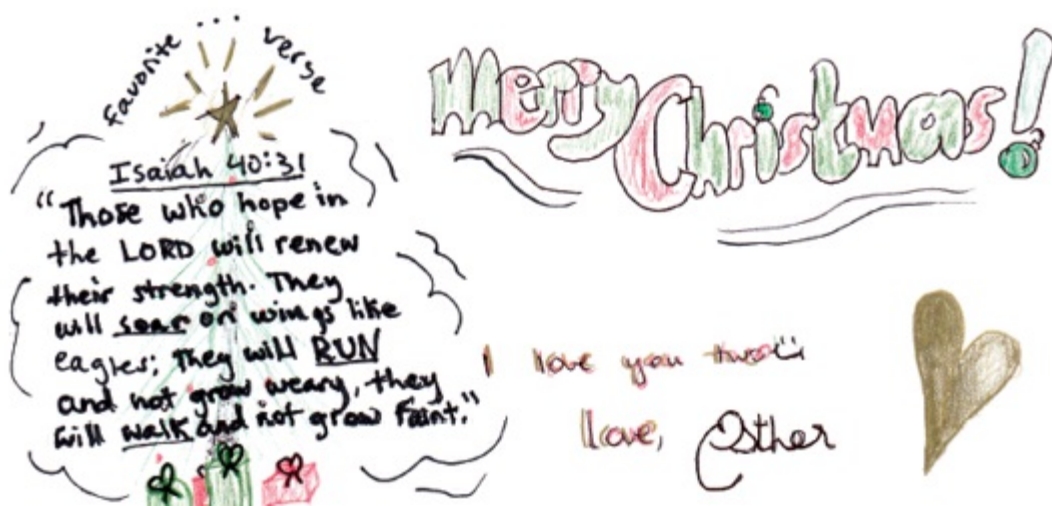 favorite ... verse
Isaiah 40:31
"Those who hope in
the LORD will renew
their strength. They
will soar on wings like
eagles; They will RUN
and not grow weary, they
will walk and not grow faint."
Merry
Christmas!
I love you two
love, Esther